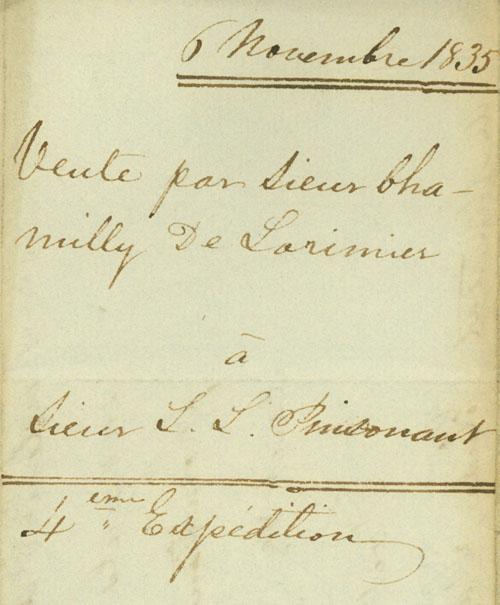 6 Novembre 1835
Vente par Sieur Cha-
milly De Lorimier
à
Sieur L. L. Pinsonaut
4eme Expédition